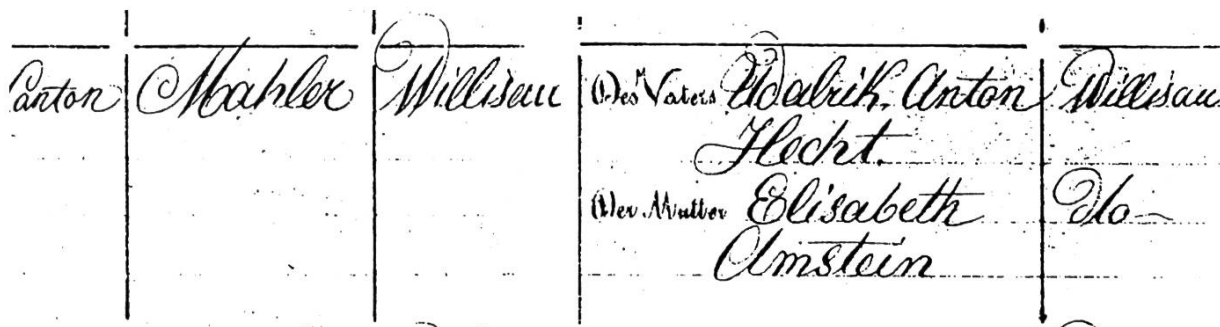 Anton Mahler Willisau Des Vaters Udalrik. Anton Willisau
Hecht.
Der Mutter Elisabeth do
Amstein